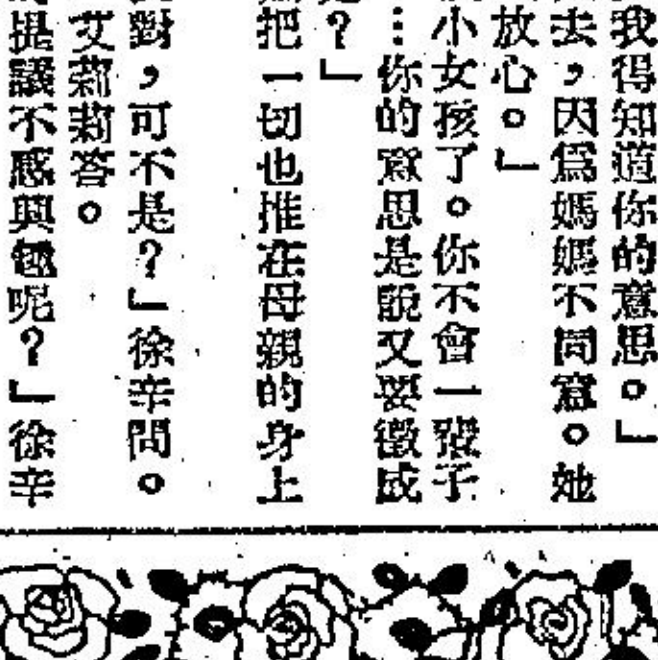 我得知道你的意思。」
去，因爲媽媽不同意。她
放心。」
小女孩了。你不會一輩子
…你的意思是說又要徵或
？」
把一切也推在母親的身上
對，可不是？」徐辛問。
艾莉莉答。
提議不感興趣呢？」徐辛